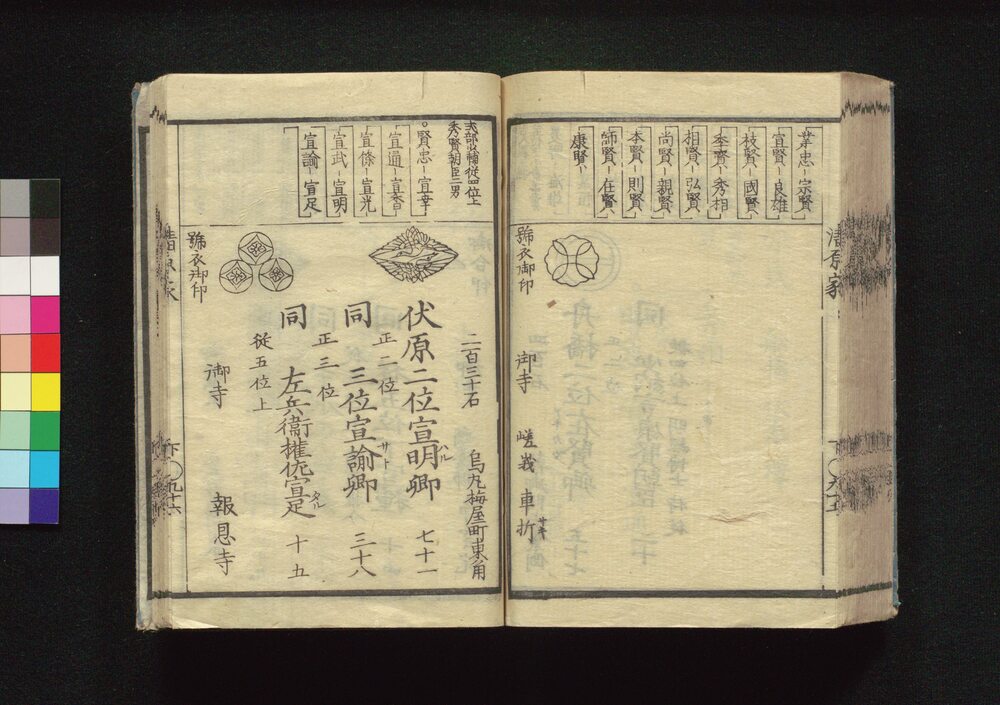 清原家
業忠－宗賢
宣賢－良雄
枝賢－國賢
季賢－秀相
相賢－弘賢
尚賢－親賢
本賢－則賢
師賢－在賢
康賢－
號衣御印
御寺 嵯峩 車折
式部少輔從四位上
秀賢朝臣二男
賢忠－宣幸
宣通－宣香
宣條－宣光
宣武－宣明
宣諭－宣足
二百三十石 烏丸梅屋町東角
伏原二位宣明卿 七十一
ハル
正二位
同 三位宣諭卿 三十八
サト
正三位
同 左兵衞權佐宣足 十五
タル
從五位上
御寺 報恩寺
號衣御印
下 九十六